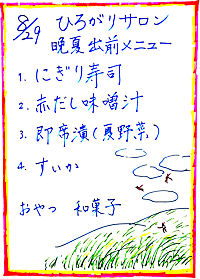 8/29 ひろがりサロン
晩夏出前メニュー
1. にぎり寿司
2. 赤だし味噌汁
3. 即席漬(夏野菜)
4. すいか
おやつ 和菓子